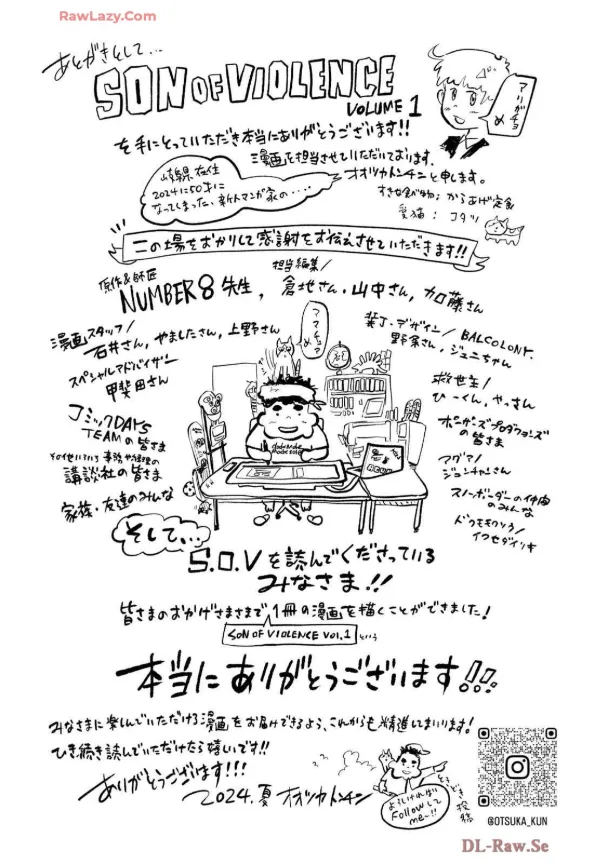 RawLazy.Com
あとがきとして...
SON OF VIOLENCE
VOLUME 1
アリガチョめ
を手にとっていただき本当にありがとうございます!!
漫画を担当させていただいております、
オオツカトンチンと申します。
岐阜県在住
2024に50才に
なってしまった、新人マンガ家の・・・・
すきな食べ物: からあげ定食
愛猫: コタツ
この場をおかりして感謝をお伝えさせていただきます!!
原作&師匠
NUMBER8先生,
担当編集/
倉地さん・山中さん, 加藤さん
漫画スタッフ/
石井さん, やましたさん, 上野さん
スペシャルアドバイザー
甲斐田さん
コミックDAYS
TEAMの皆さま
講談社の皆さま
家族・友達のみんな
アマチュアめ
装丁・デザイン/BALCOLONY.
野条さん, ジュニちゃん
救世主/
ひーくん, やっさん
の皆さま
スノーボーダーの仲間
のみんな
そして、、、
S.O.Vを読んでくださっている
みなさま!!
皆さまのおかげさまさまで1冊の漫画を描くことができました!
SON OF VIOLENCE VOL.1 という
本当にありがとうございます!!!
みなさまに楽しんでいただける漫画をお届けできるよう、これからも精進してまいります!
ひき続き読んでいただけたら嬉しいです!!
ありがとうございます!!!
2024.夏 オオツカトンチン
よろしければ
Followして
me~!!
ときどき投稿
@OTSUKA_KUN
DL-Raw.Se